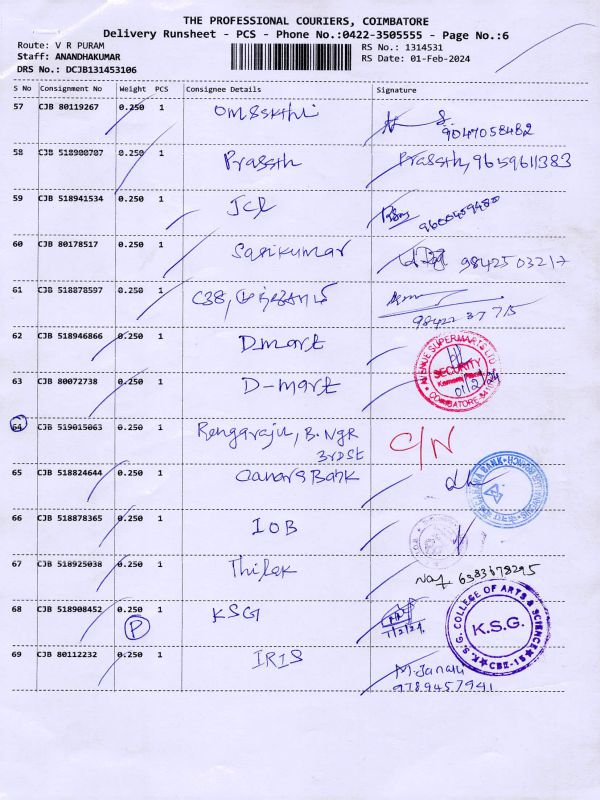 THE PROFESSIONAL COURIERS, COIMBATORE
Delivery Runsheet - PCS - Phone No.:0422-3505555 - Page No.:6
Route: V R PURAM
Staff: ANANDHAKUMAR
DRS No.: DCJB131453106
RS No.: 1314531
RS Date: 01-Feb-2024
S No Consignment No Weight PCS Consignee Details Signature
57 CJB 80119267 0.250 1 Omsakthi 9047058482
58 CJB 518900707 0.250 1 Prassth Prassth, 9659611383
59 CJB 518941534 0.250 1 JCL 9600409480
60 CJB 80178517 0.250 1 Sasikumar 9842503217
61 CJB 518878597 0.250 1 C38, 98422 37715
62 CJB 518946866 0.250 1 D-mart
63 CJB 80072738 0.250 1 D-mart
AVENUE SUPERMARTS LTD
SECURITY
01/2/24
COIMBATORE
64 CJB 519015063 0.250 1 Rengaraju, B.Ngr C/N
3rd St
65 CJB 518824644 0.250 1 Canara Bank
CANARA BANK
66 CJB 518878365 0.250 1 IOB
67 CJB 518925038 0.250 1 Thilak 6383678295
68 CJB 518908452 0.250 1 KSG
P
1/2/24
K. S. G. COLLEGE OF ARTS & SCIENCE
K.S.G.
CBE-15
69 CJB 80112232 0.250 1 IRIS M.Janani
9789457941